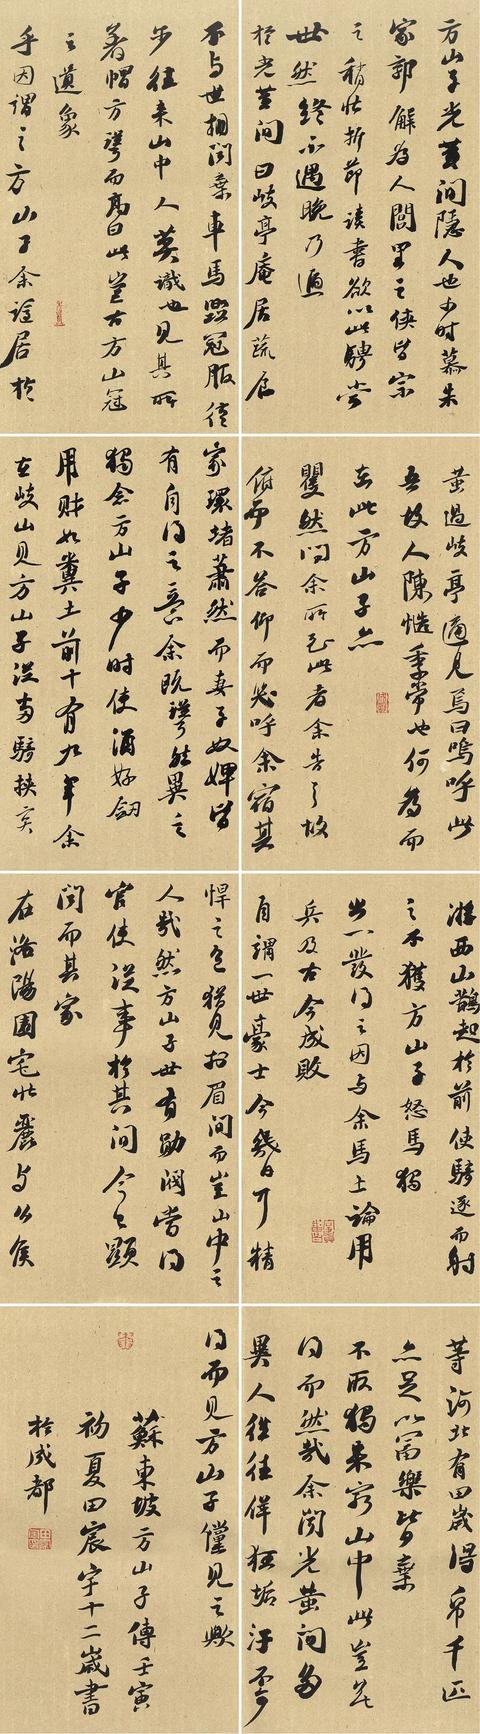 方山子光黃間隱人也少時慕朱
家郭解為人閭里之俠皆宗
之稍壯折節讀書欲以此騁當
世然終不遇晚乃遯
於光黃間曰岐亭庵居蔬食
不与世相聞棄車馬毀冠服徒
步往來山中人莫識也見其所
著帽方聳而高曰此豈古方山冠
之遺象
乎因謂之方山子余謫居於
黃過岐亭適見焉曰嗚呼此
吾故人陳慥季常也何為而
在此方山子亦
矍然問余所以至此者余告之故
俯而不答仰而笑呼余宿其
家環堵蕭然而妻子奴婢皆
有自得之意余既聳然異之
獨念方山子少時使酒好劍
用財如糞土前十有九年余
在岐山見方山子從兩騎挾二矢
游西山鵲起於前使騎逐而射
之不獲方山子怒馬獨
出一發得之因与余馬上論用
兵及古今成敗
自謂一世豪士今幾日耳精
悍之色猶見於眉間而豈山中之
人哉然方山子世有勳閥當得
官使從事於其間今已顯
聞而其家
在洛陽園宅壯麗与公侯
等河北有田歲得帛千匹
亦足以富樂皆棄
不取獨來窮山中此豈無
得而然哉余聞光黃間多
異人往往佯狂垢汙不可
得而見方山子儻見之歟
蘇東坡方山子傳壬寅
初夏田宸宇十二歲書
於成都